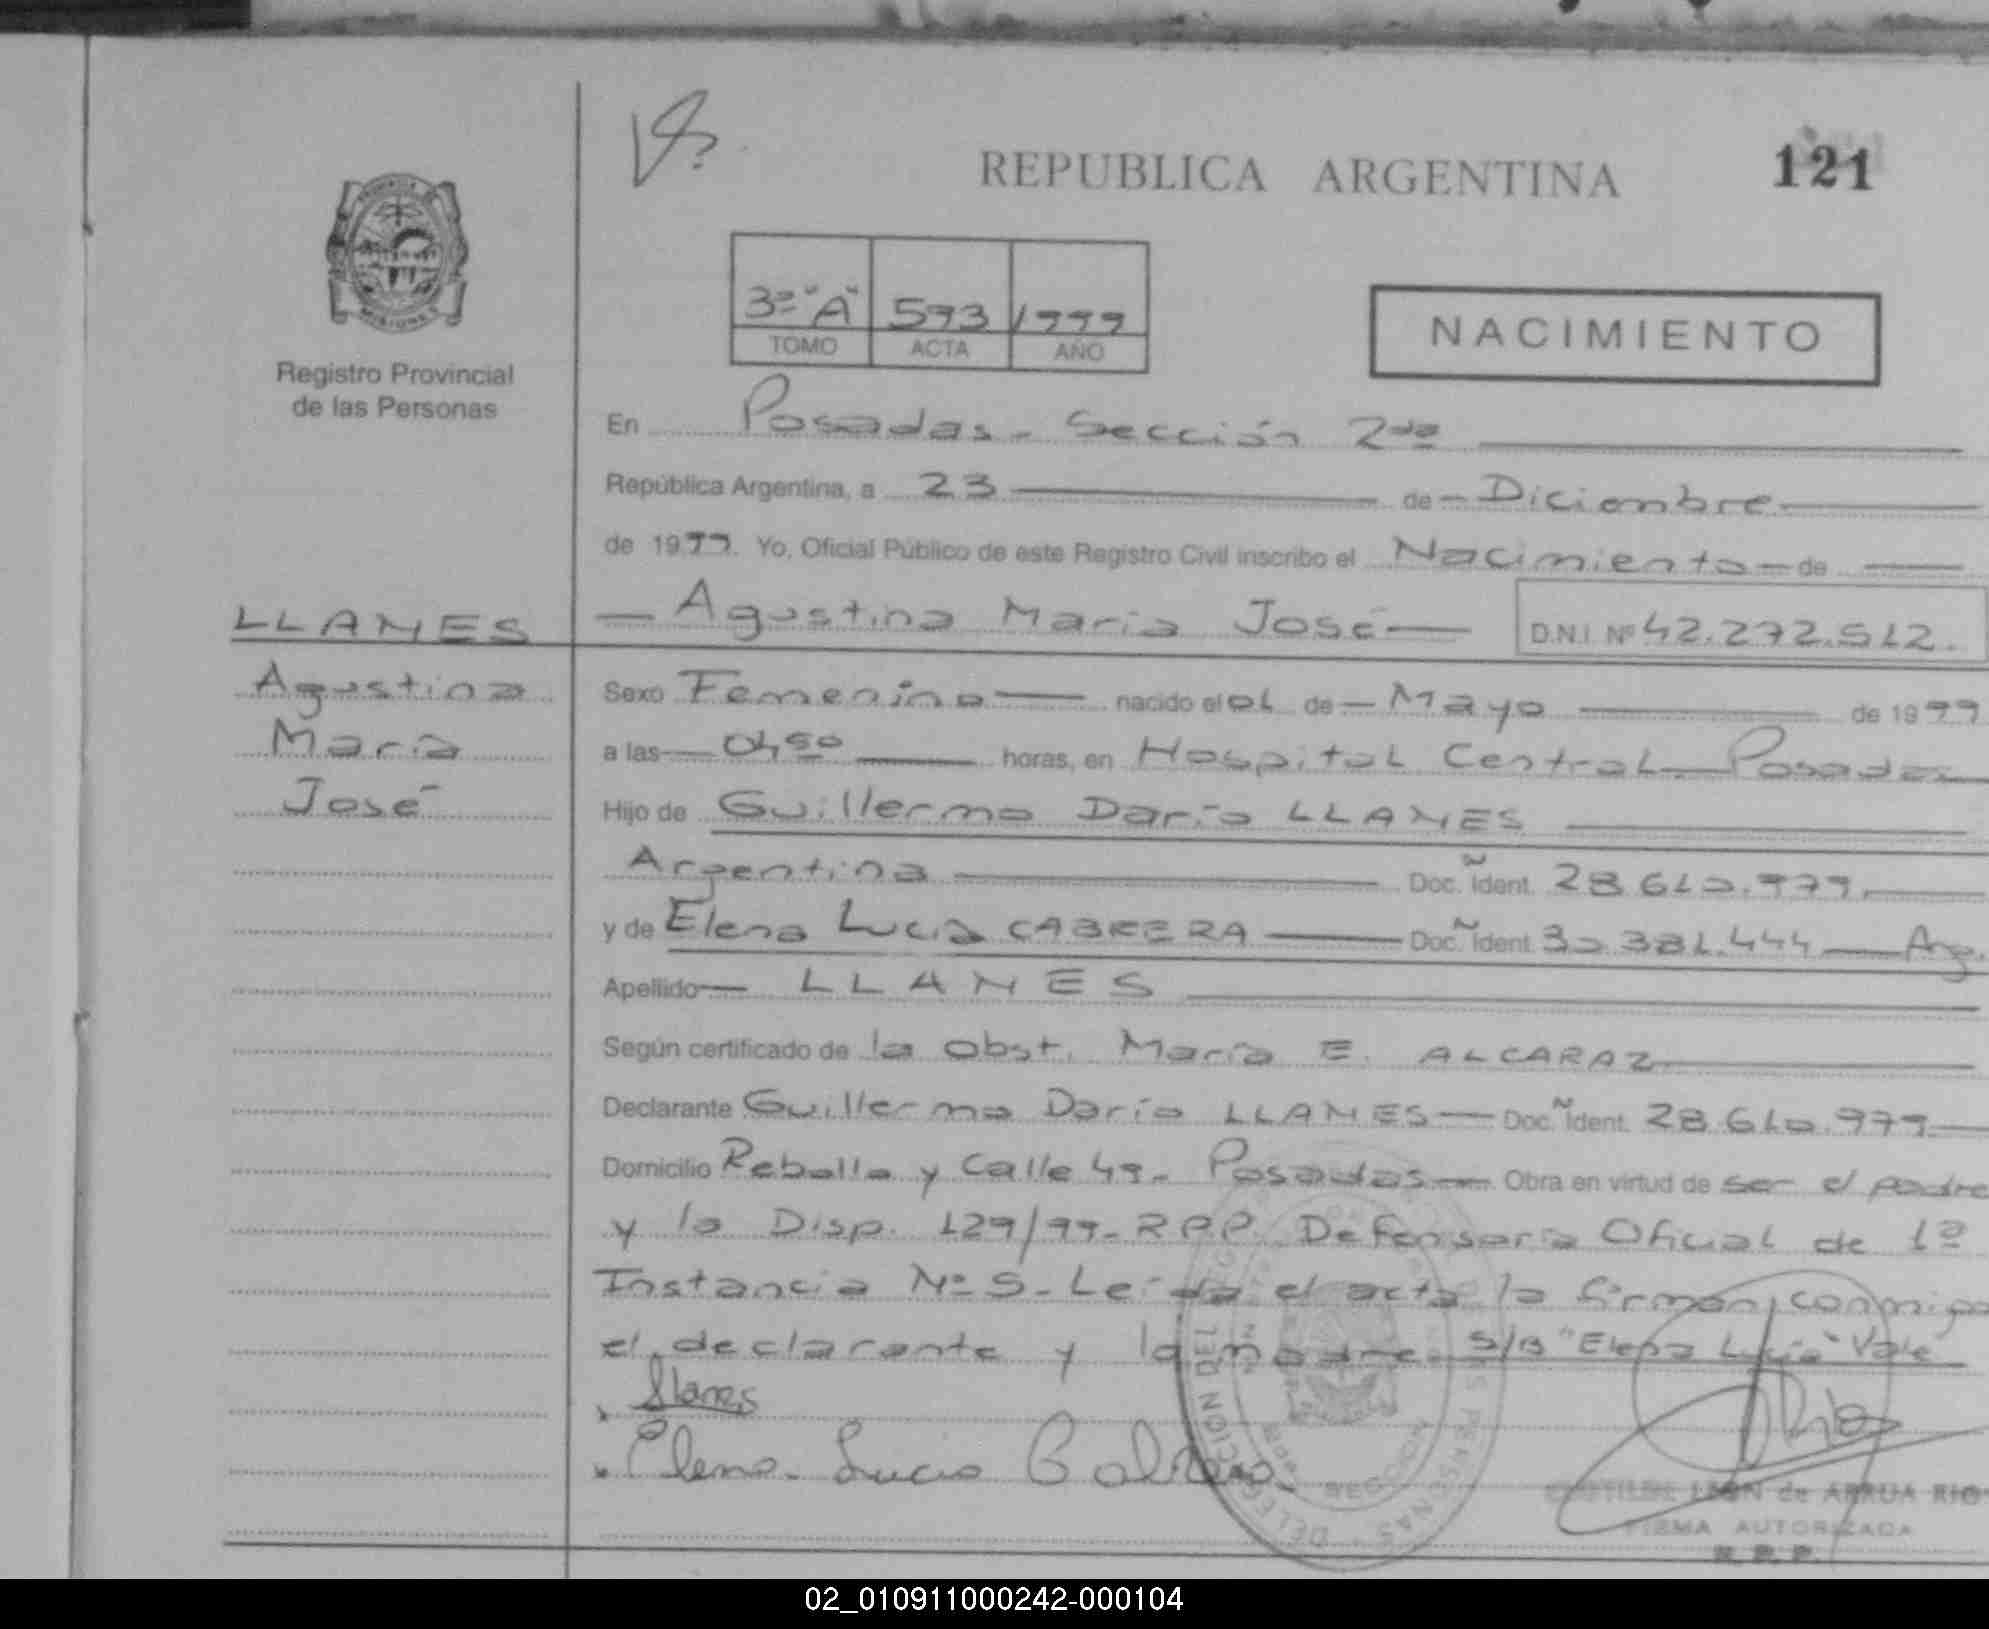 REPUBLICA ARGENTINA
121
MISIONES
Registro Provincial
de las Personas
3º "A" 593 1999
TOMO ACTA AÑO
NACIMIENTO
En Posadas - Sección 2da
República Argentina, a 23 de Diciembre
de 1999. Yo, Oficial Público de este Registro Civil inscribo el Nacimiento de
LLANES
Agustina María José
D.N.I. Nº 42.272.512.
Agustina
María
José
Sexo Femenino nacido el 01 de Mayo de 1999
a las 04,50 horas, en Hospital Central - Posadas
Hijo de Guillermo Darío LLANES
Argentina Doc. Ident. 28.610.979.
y de Elena Lucia CABRERA Doc. Ident. 30.381.444 Arg.
Apellido LLANES
Según certificado de la obst. María E. ALCARAZ
Declarante Guillermo Darío LLANES Doc. Ident. 28.610.979
Domicilio Rebollo y Calle 49 - Posadas Obra en virtud de ser el padre
y la Disp. 129/99 - R.P.P. Defensoría Oficial de 1ª
Instancia Nº 5 - Leída el acta la firman conmigo
el declarante y la madre. S/B "Elena Lucia" Vale
Llanes
Elena Lucia Cabrera
LEON de ARRUA RIOS
FIRMA AUTORIZADA
R. P. P.
02_010911000242-000104